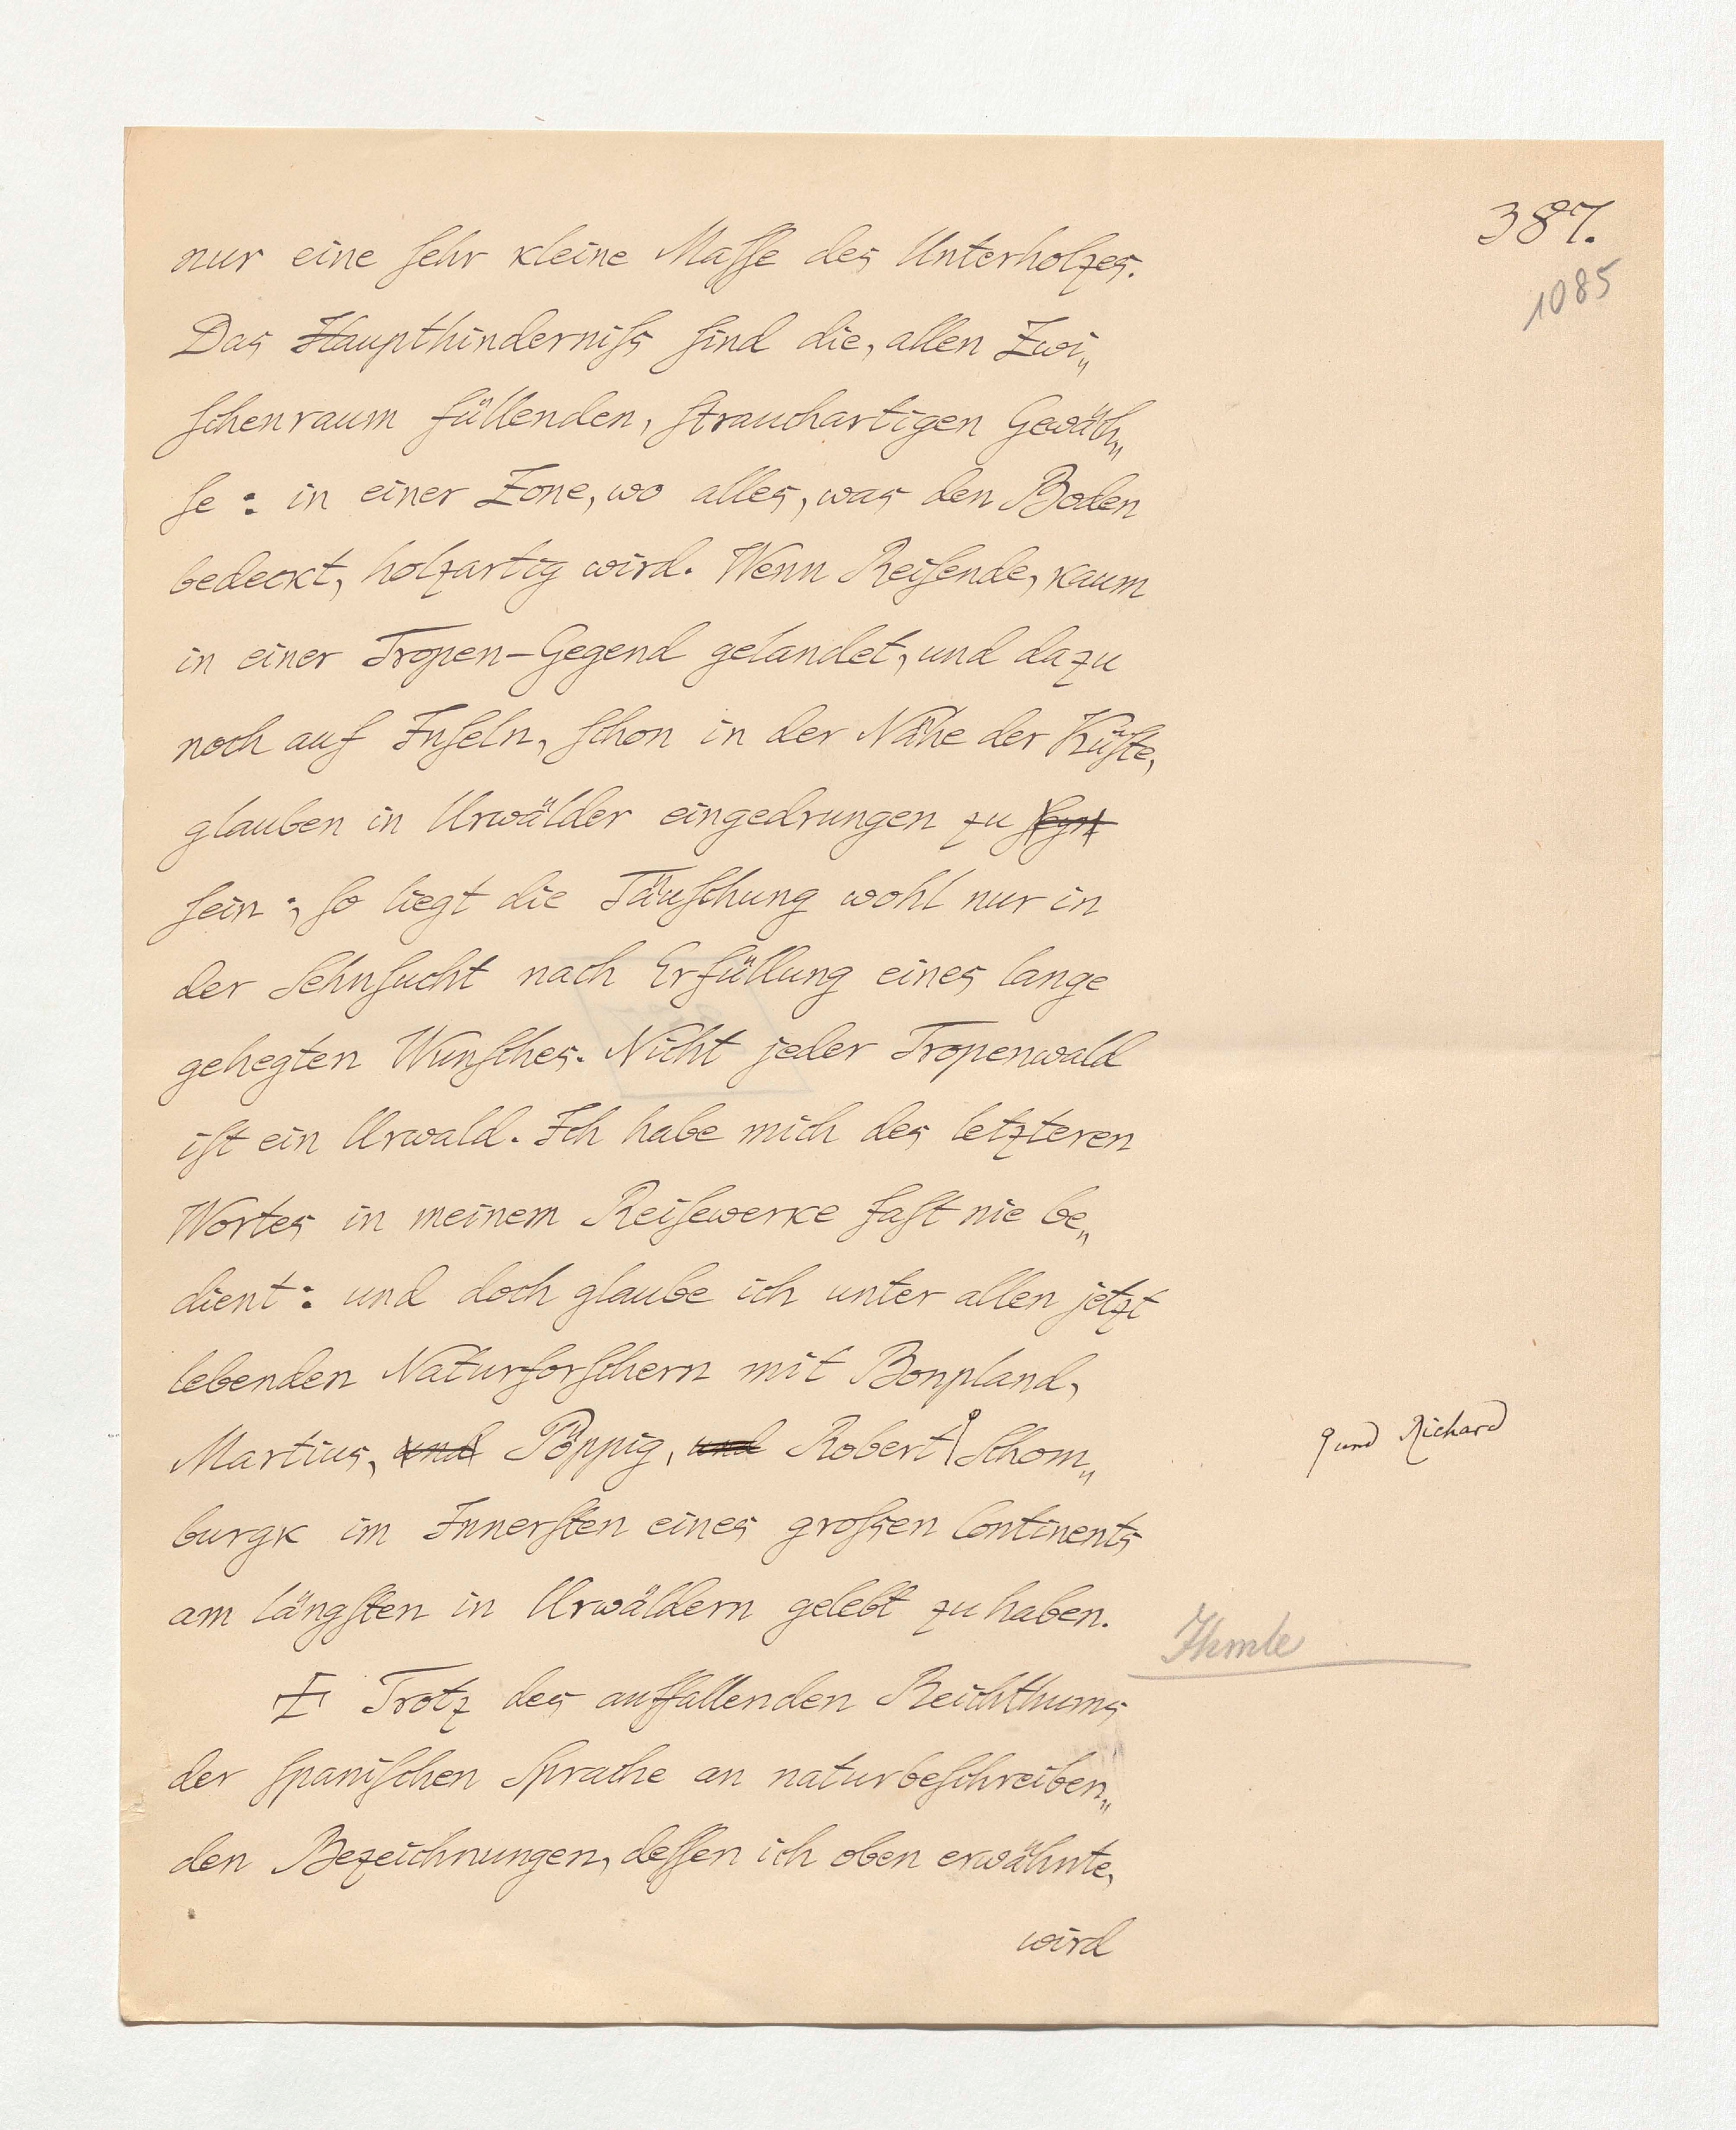 387.
1085
nur eine sehr kleine Masse des Unterholzes.
Das Haupthinderniss sind die, allen Zwi„
schenraum füllenden, strauchartigen Gewäch„
se: in einer Zone, wo alles, was den Boden
bedeckt, holzartig wird. Wenn Reisende, kaum
in einer Tropen-Gegend gelandet, und dazu
noch auf Inseln, schon in der Nähe der Küste,
glauben in Urwälder eingedrungen zu seyn
sein; so liegt die Täuschung wohl nur in
der Sehnsucht nach Erfüllung eines lange
gehegten Wunsches. Nicht jeder Tropenwald
ist ein Urwald. Ich habe mich des letzteren
Wortes in meinem Reisewerke fast nie be„
dient: und doch glaube ich unter allen jetzt
lebenden Naturforschern mit Bonpland,
Martius, und Pöppig, und Robert Schom„
und Richard
burgk im Innersten eines grossen Continents
am längsten in Urwäldern gelebt zu haben.
Trotz des auffallenden Reichthums
der spanischen Sprache an naturbeschreiben„
den Bezeichnungen, dessen ich oben erwähnte,
wird